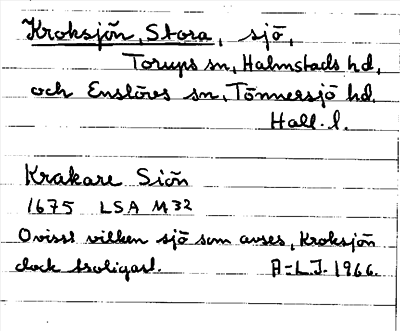 Kroksjön, Stora, sjö,
Torups sn, Halmstads hd,
och Enslövs sn, Tönnersjö hd.
Hall. l.
Krakare Siön
1675 LSA M32
Ovisst vilken sjö som avses, Kroksjön
dock troligast. A-L.J. 1966.